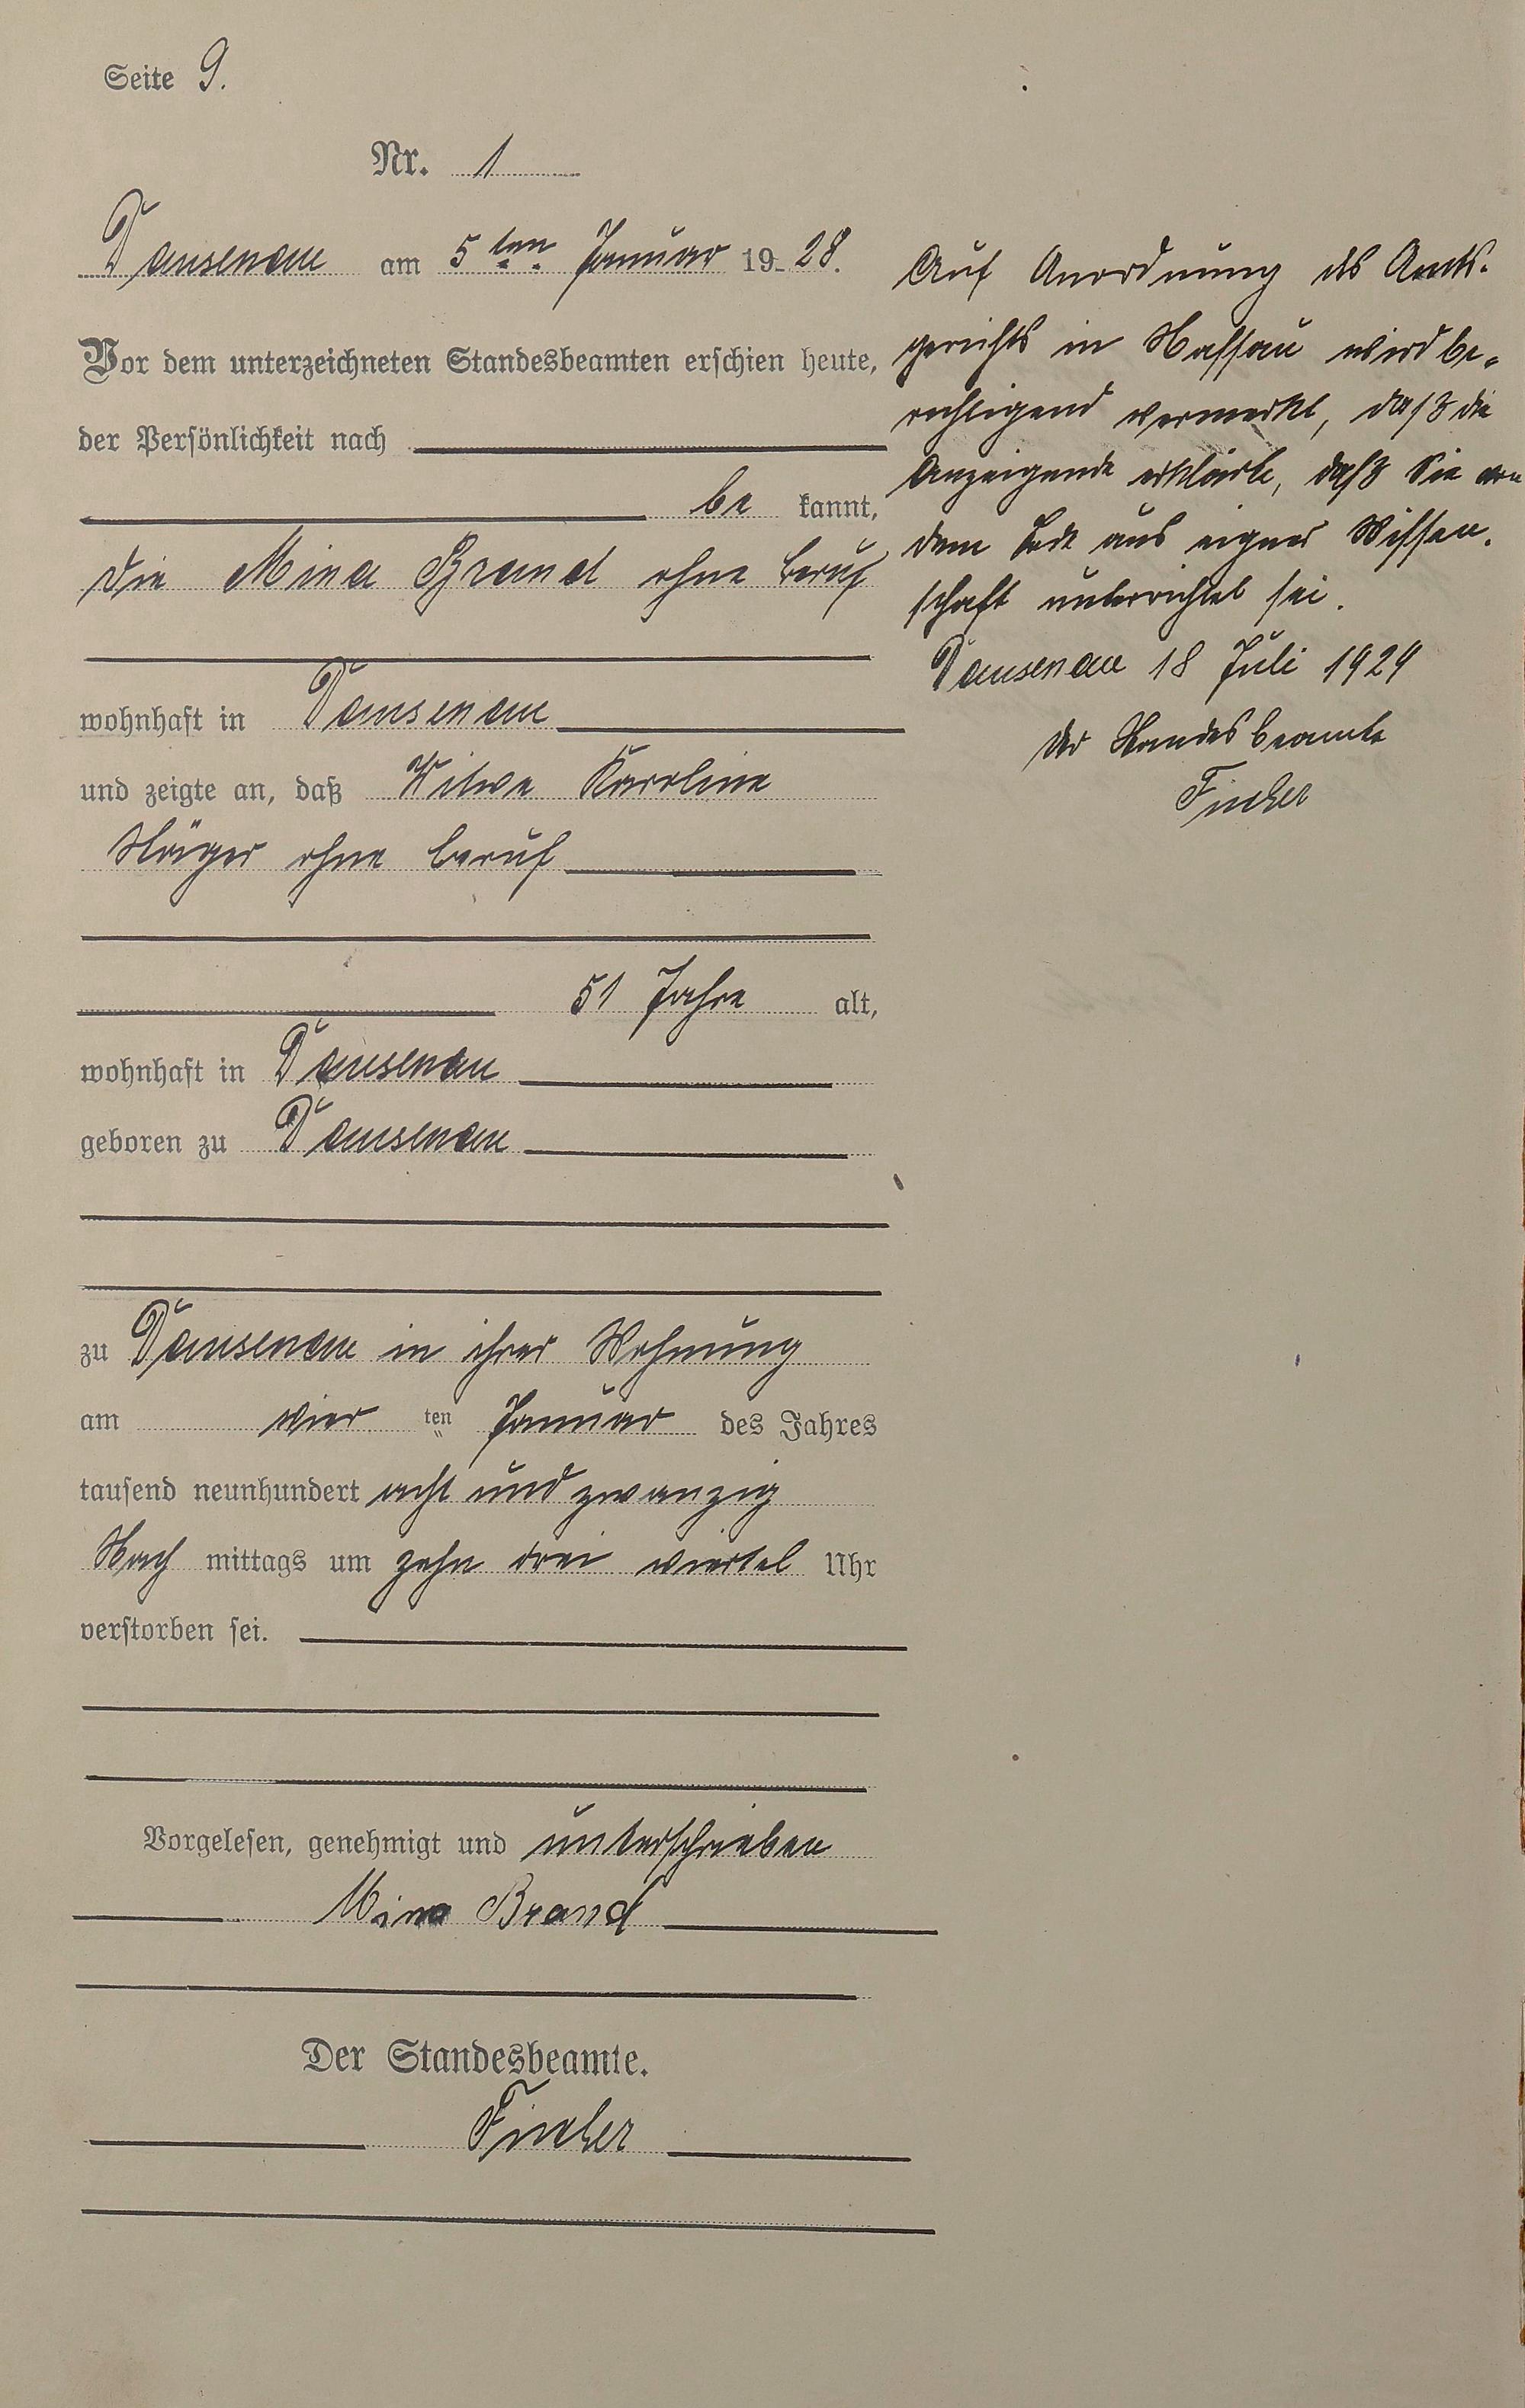 Seite 9.
Nr. 1
Dausenau am 5ten Januar 1928.
Vor dem unterzeichneten Standesbeamten erschien heute,
der Persönlichkeit nach
be kannt,
die Mina Brand ohne Beruf
wohnhaft in Dausenau
und zeigte an, daß Witwe Karoline
ohne Beruf
51 Jahre alt,
wohnhaft in Dausenau
geboren zu Dausenau
zu Dausenau in ihrer Wohnung
am vier ten Januar des Jahres
tausend neunhundert acht und zwanzig
Nach mittags um zehn drei viertel Uhr
verstorben sei.
Vorgelesen, genehmigt und unterschrieben
Mina Brand
Der Standesbeamte.
Auf Anordnung des Amts-
gerichts in Nassau wird be-
richtigend vermerkt, daß die
Anzeigende erklärte, daß Sie von
dem Tode aus eigner Wissen-
schaft unterrichtet sei.
Dausenau 18 Juli 1929
Der Standesbeamte